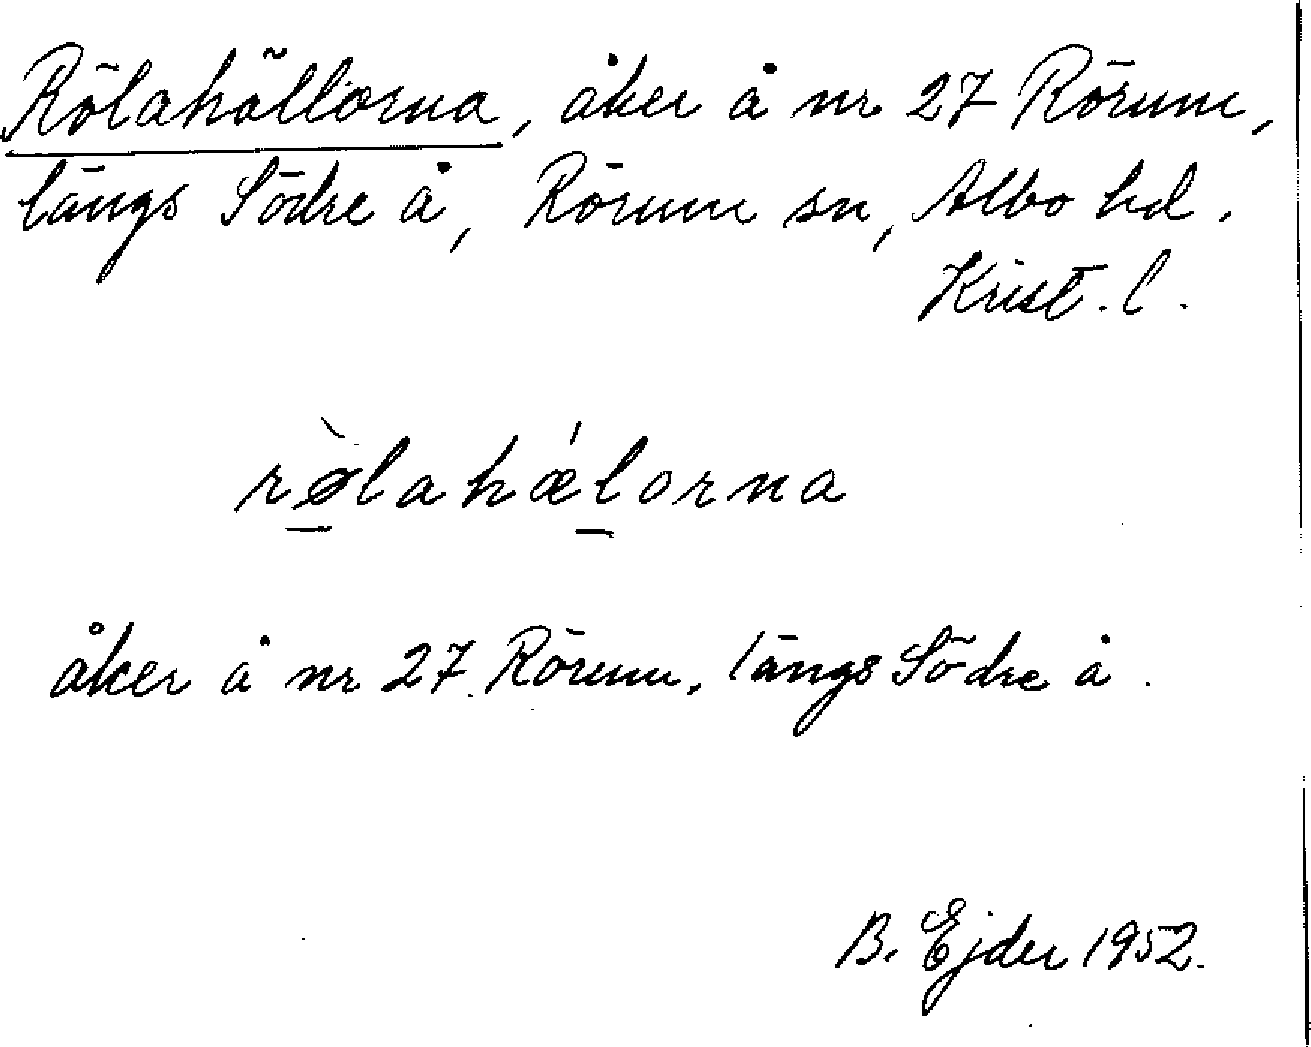 Rölahällorna, åker å nr 27 Rörum,
längs Södre å, Rörum sn, Albo hd.
Krist. l.
rø̀lahǽlorna
åker å nr 27 Rörum, längs Södre å.
B. Ejder 1952.